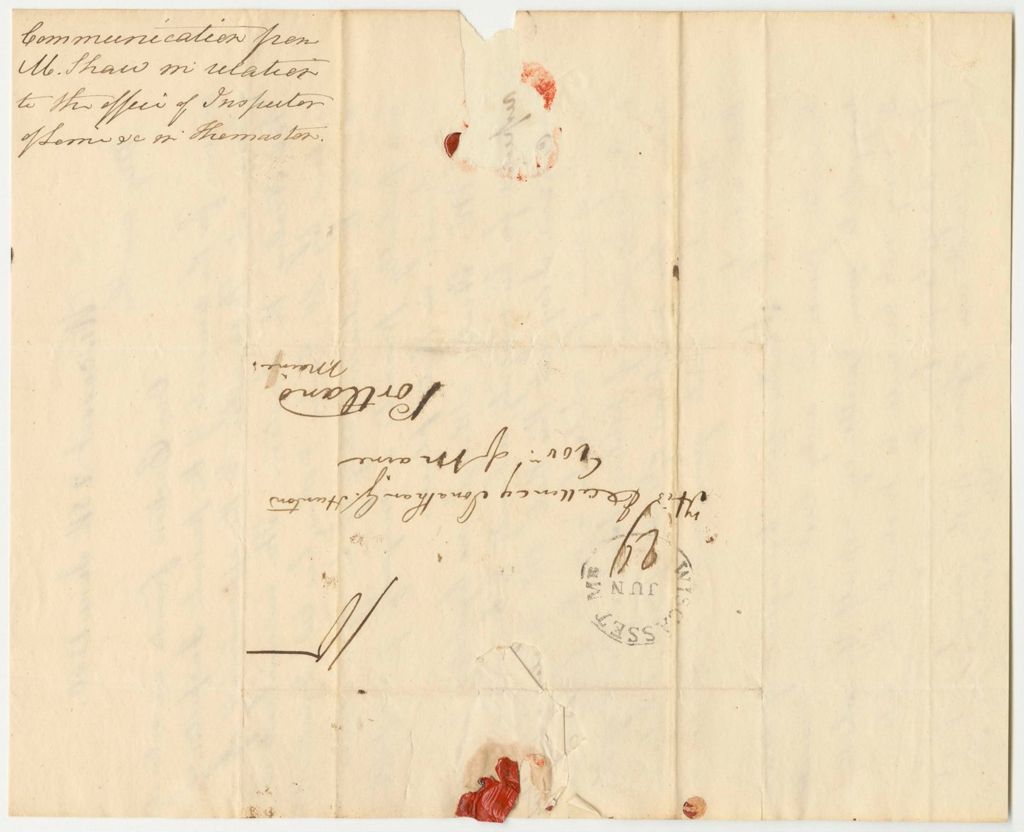 Communication from
M. Shaw in relation
to the office of Inspector
of Lime &c in Thomaston.
WISCASSET ME
JUN
29
10
His Excellency Jonathan G. Hunton
Govr. of Maine
Portland
Maine.